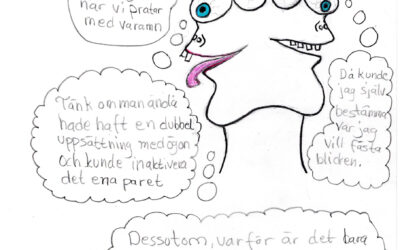 när vi pratar
med varann
Tänk om man ändå
hade haft en dubbel
uppsättning med ögon
och kunde inaktivera
det ena paret
Då kunde
jag själv
bestämma
var jag
vill fästa
blicken.
Dessutom, varför är det bara